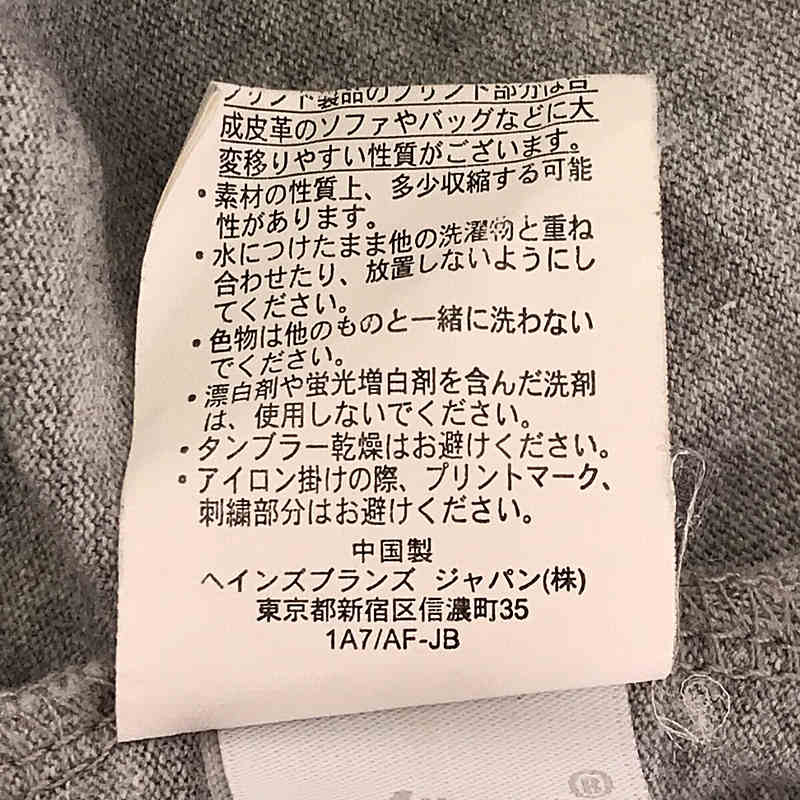 プリント製品のプリント部分は合
成皮革のソファやバッグなどに大
変移りやすい性質がございます。
・素材の性質上、多少収縮する可能
性があります。
・水につけたまま他の洗濯物と重ね
合わせたり、放置しないようにし
てください。
・色物は他のものと一緒に洗わない
でください。
・漂白剤や蛍光増白剤を含んだ洗剤
は、使用しないでください。
・タンブラー乾燥はお避けください。
・アイロン掛けの際、プリントマーク、
刺繍部分はお避けください。
中国製
ヘインズブランズ ジャパン(株)
東京都新宿区信濃町35
1A7/AF-JB
®